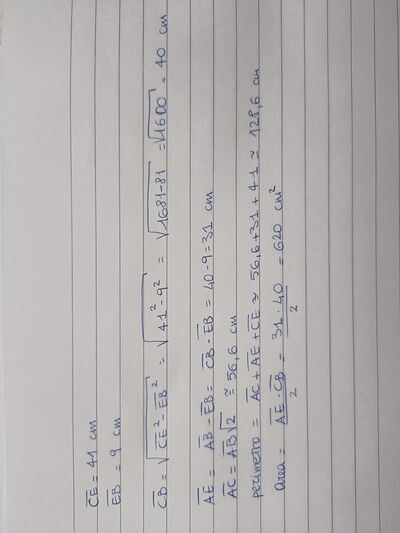 CE = 41 cm
EB = 9 cm
CB = √(CE² - EB²) = √(41² - 9²) = √(1681 - 81) = √1600 = 40 cm
AE = AB - EB = CB - EB = 40 - 9 = 31 cm
AC = AB√2 ≃ 56,6 cm
perimetro = AC + AE + CE ≃ 56,6 + 31 + 41 ≃ 128,6 cm
area = AE · CB / 2 = 31 · 40 / 2 = 620 cm²